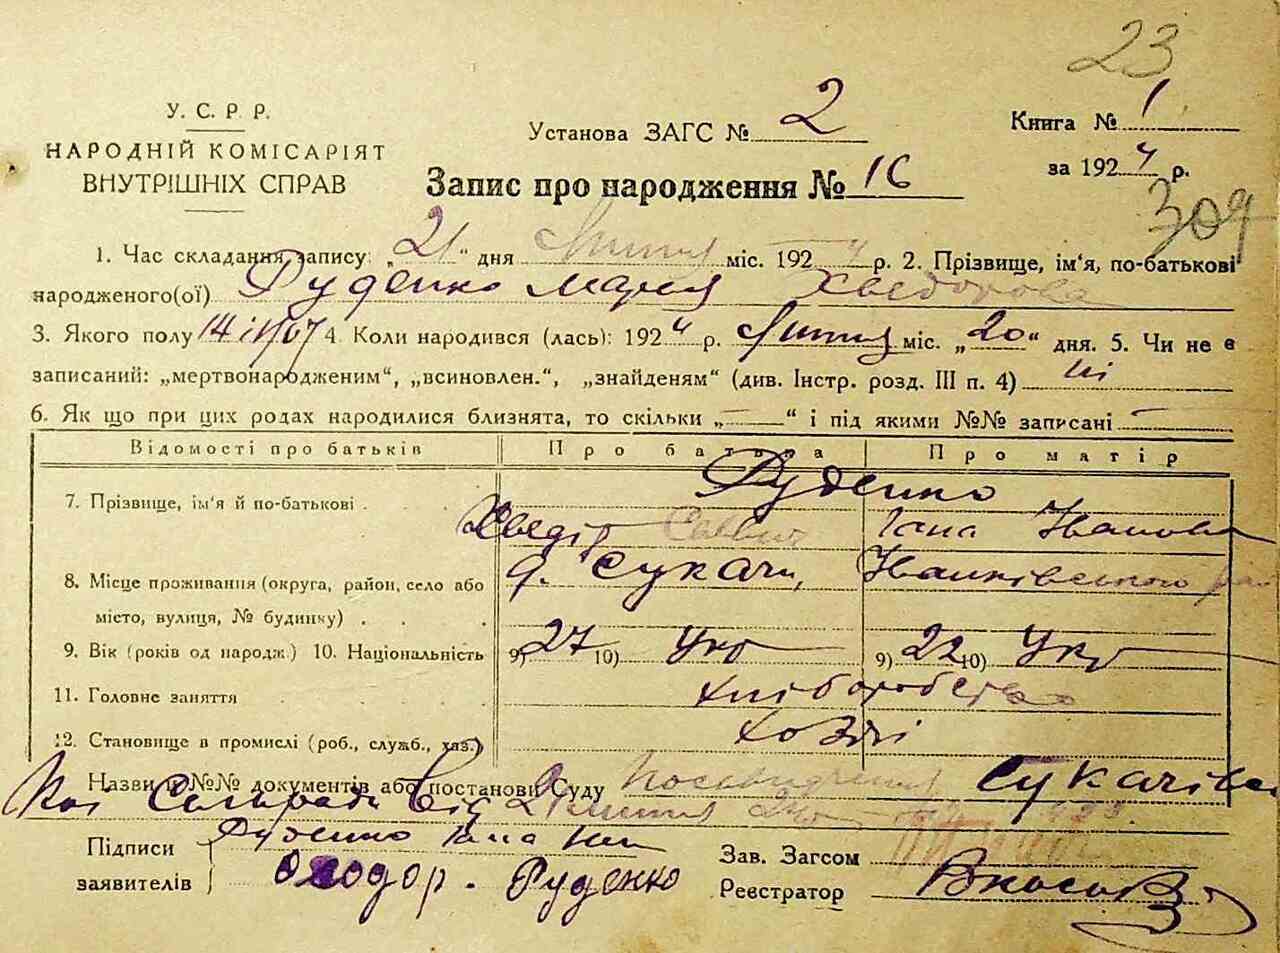 23
У. С. Р. Р.
НАРОДНІЙ КОМІСАРІЯТ
ВНУТРІШНІХ СПРАВ
Установа ЗАГС № 2
Книга № 1
за 1924 р.
Запис про народження № 16
309
1. Час складання запису: „21" дня Липня міс. 1924 р. 2. Прізвище, ім'я, по-батькові
народженого(ої) Руденко Мария Хведорова
3. Якого полу жіноч 4. Коли народився (лась): 1924 р. Липня міс. „20" дня. 5. Чи не є
записаний: „мертвонародженим", „всиновлен.", „знайденям" (див. Інстр. розд. III п. 4) ні
6. Як що при цих родах народилися близнята, то скільки „—" і під якими №№ записані —
Відомості про батьків Про батька Про матір
Руденко
7. Прізвище, ім'я й по-батькові .
Хведір Саввич Гана Іванова
8. Місце проживання (округа, район, село або с. Сукачи, Іванківського рай
місто, вулиця, № будинку) . . .
9. Вік (років од народж.) 10. Національність 9) 27 10) Укр 9) 22 10) Укр
11. Головне заняття хліборобство
12. Становище в промислі (роб., служб., хаз.) хозяї
Назви й №№ документів або постанови Суду Посвидчення Сукачівсь
кої Сельради від 21 липня
Підписи Руденко Гана
заявителів Хходор. Руденко
Зав. Загсом
Реєстратор